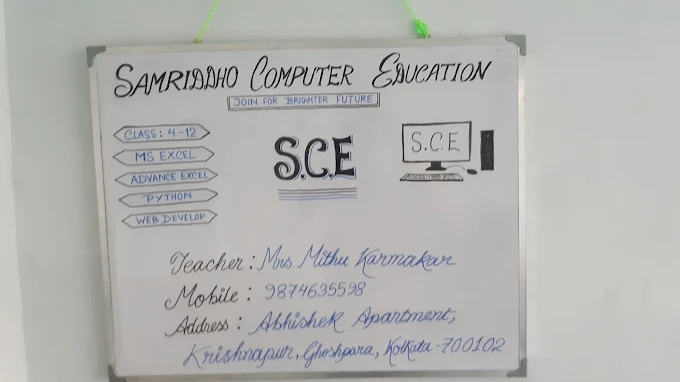 SAMRIDDHO COMPUTER EDUCATION
JOIN FOR BRIGHTER FUTURE
CLASS: 4-12
MS EXCEL
ADVANCE EXCEL
PYTHON
WEB DEVELOP
S.C.E
S.C.E
Teacher: Mrs. Mithu Karmakar
Mobile: 9874635598
Address: Abhishek Apartment,
Krishnapur, Ghoshpara, Kolkata-700102